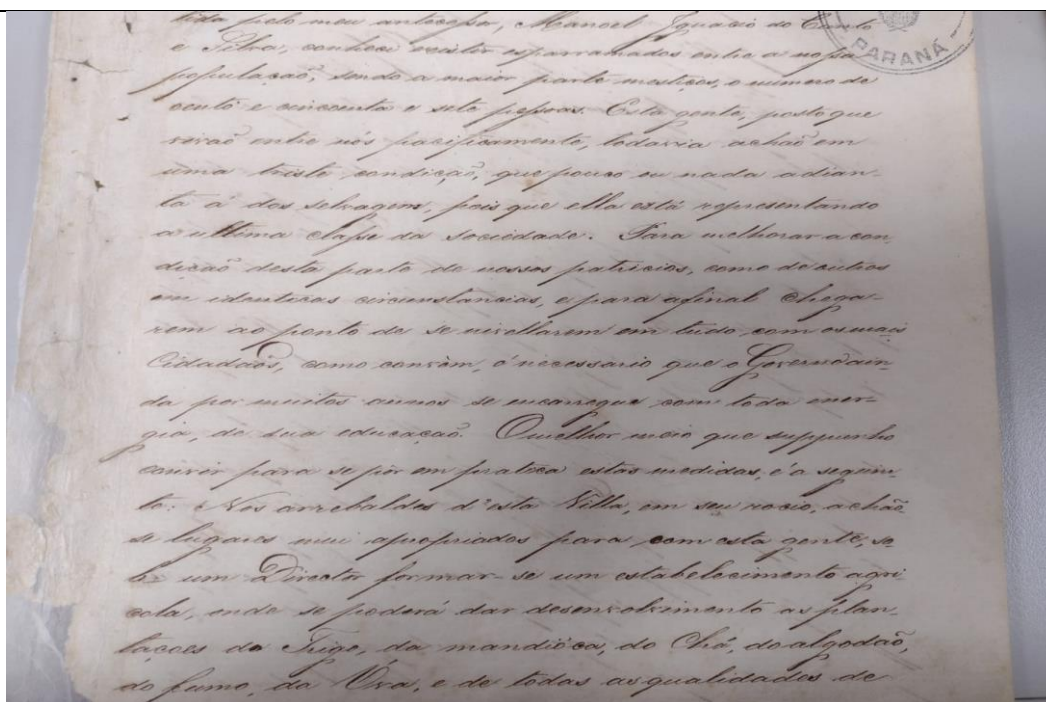 tida pelo meu antecessor, Manoel Ignacio do Canto
e Silva, conheci existir esparramados entre a nossa
população, sendo a maior parte mestiços, o numero de
cento e cincoenta e sete pessoas. Esta gente, posto que
vivaõ entre nós pacificamente, todavia achaõ em
uma triste condicaõ, que pouco ou nada adian-
ta á dos selvagem, pois que ella está representando
a ultima classe da sociedade. Para melhorar a con-
dicaõ desta parte de nossos patricios, como de outros
em identicas circunstancias, e para afinal chega-
rem ao ponto de se nivellarem em tudo com os mais
Cidadaõs, como convèm, é necessario que o Governo ain-
da por muitos annos se encarregue com toda ener-
gia, de sua educaçaõ. O melhor meio que suppunho
convir para se pôr em pratica estas medidas, é a seguin-
te: Nos arrebaldes d'esta Villa, em seu rocio, achaõ
se lugares mui apropriados para com esta gente, so-
b um Director formar-se um estabelecimento agri
cola, onde se poderá dar desenvolvimento as plan-
tacoes do Trigo, da mandióca, do Chá, do algodaõ,
do fumo, da Uva, e de todas as qualidades de
PARANÁ